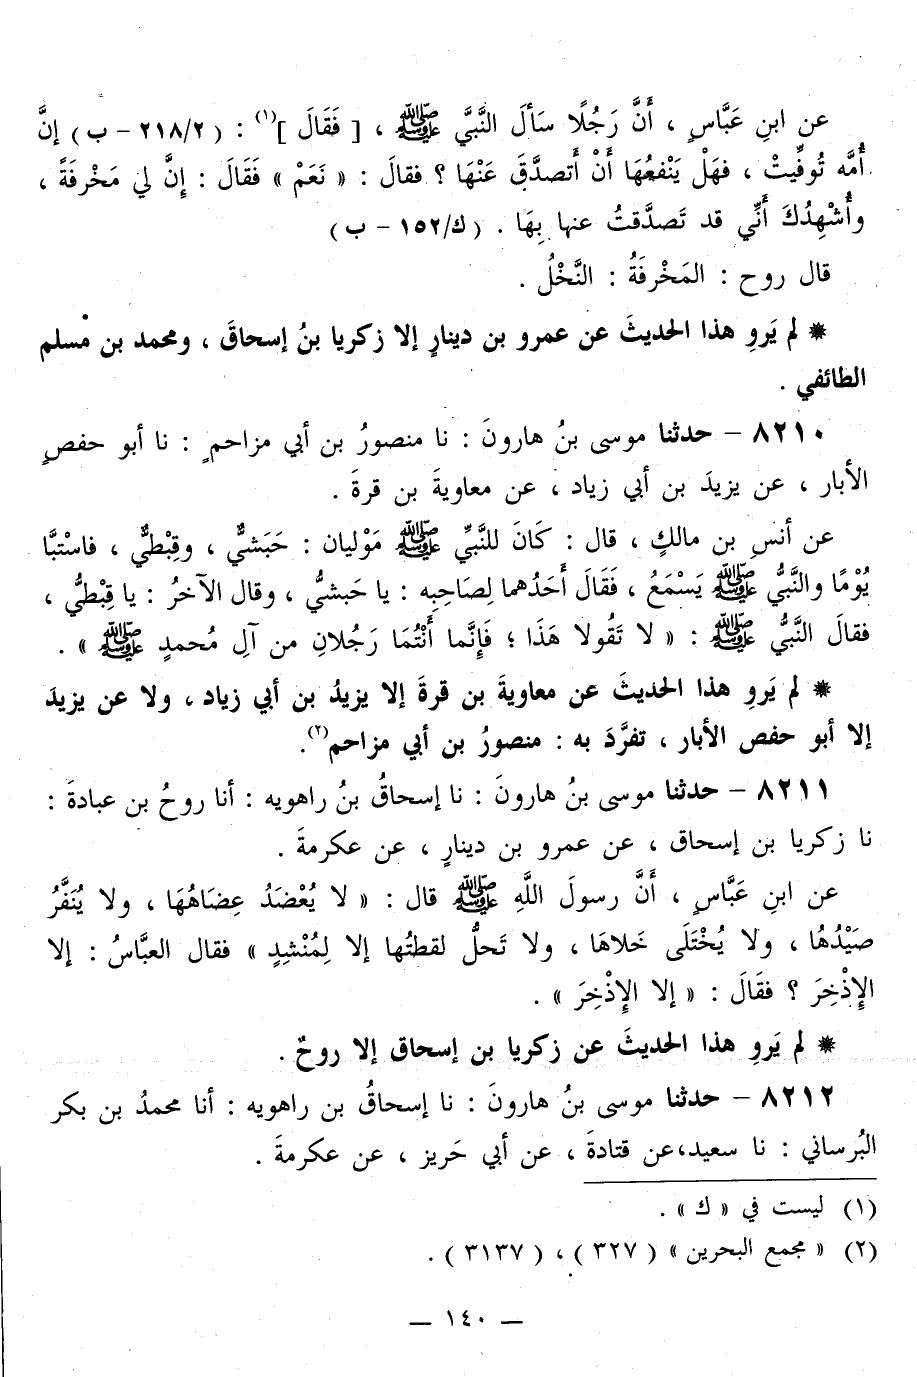 عن ابنِ عَبَّاسٍ ، أَنَّ رَجُلًا سَأَلَ النَّبيَّ ﷺ ، [ فَقَالَ ](١) : ( ٢١٨/٢ – ب ) إنَّ
أُمَّه تُوفِّيتْ ، فهَلْ يَنْفعُهَا أَنْ أَتصدَّقَ عَنْهَا ؟ فقالَ : « نَعَمْ » فَقَالَ : إنَّ لي مَخْرفَةً ،
وأُشْهِدُكَ أَنِّي قد تَصدَّقتُ عنها بِهَا . ( ك/١٥٢ – ب )
قال روح : المَخْرفَةُ : النَّخْلُ .
* لم يَروِ هذا الحديثَ عن عمرو بن دينارٍ إلا زكريا بنُ إسحاقَ ، ومحمد بن مُسلم
الطائفي .
٨٢١٠ – حدثنا موسى بنُ هارونَ : نا منصورُ بن أبي مزاحمٍ : نا أبو حفصٍ
الأبار ، عن يزيدَ بن أبي زياد ، عن معاويةَ بن قرةَ .
عن أنسِ بن مالكٍ ، قال : كَانَ للنَّبيِّ ﷺ مَوْليان : حَبَشيٌّ ، وقِبْطيٌّ ، فاسْتبَّا
يُوْمًا والنَّبيُّ ﷺ يَسْمَعُ ، فَقَالَ أَحَدُهما لِصَاحِبِه : يا حَبشيُّ ، وقال الآخرُ : يا قِبْطيُّ ،
فقالَ النَّبيُّ ﷺ : « لا تَقُولا هَذَا ؛ فَإنَّما أَنْتُمَا رَجُلانِ من آلِ مُحمدٍ ﷺ » .
* لم يَروِ هذا الحديثَ عن معاويةَ بن قرةَ إلا يزيدُ بن أبي زياد ، ولا عن يزيدَ
إلا أبو حفص الأبار ، تفرَّدَ به : منصورُ بن أبي مزاحم(٢).
٨٢١١ – حدثنا موسى بنُ هارونَ : نا إسحاقُ بنُ راهويه : أنا روحُ بن عبادةَ :
نا زكريا بن إسحاق ، عن عمرو بن دينارٍ ، عن عكرمةَ .
عن ابنِ عَبَّاسٍ ، أَنَّ رسولَ اللَّهِ ﷺ قال : « لا يُعْضَدُ عِضَاهُهَا ، ولا يُنَفَّرُ
صَيْدُهُا ، ولا يُخْتَلَى خَلاهَا ، ولا تَحلُّ لقطتُها إلا لِمُنْشِدٍ » فقال العبَّاسُ : إلا
الإِذْخِرَ ؟ فقَالَ : « إلا الإِذْخِرَ » .
* لم يَروِ هذا الحديثَ عن زكريا بن إسحاق إلا روحٌ .
٨٢١٢ – حدثنا موسى بنُ هارونَ : نا إسحاقُ بن راهويه : أنا محمدُ بن بكر
البُرساني : نا سعيد،عن قتادةَ ، عن أبي حَريز ، عن عكرمةَ .
(١) ليست في « ك » .
(٢) « مجمع البحرين » ( ٣٢٧ ) ، ( ٣١٣٧ ) .
— ١٤٠ —